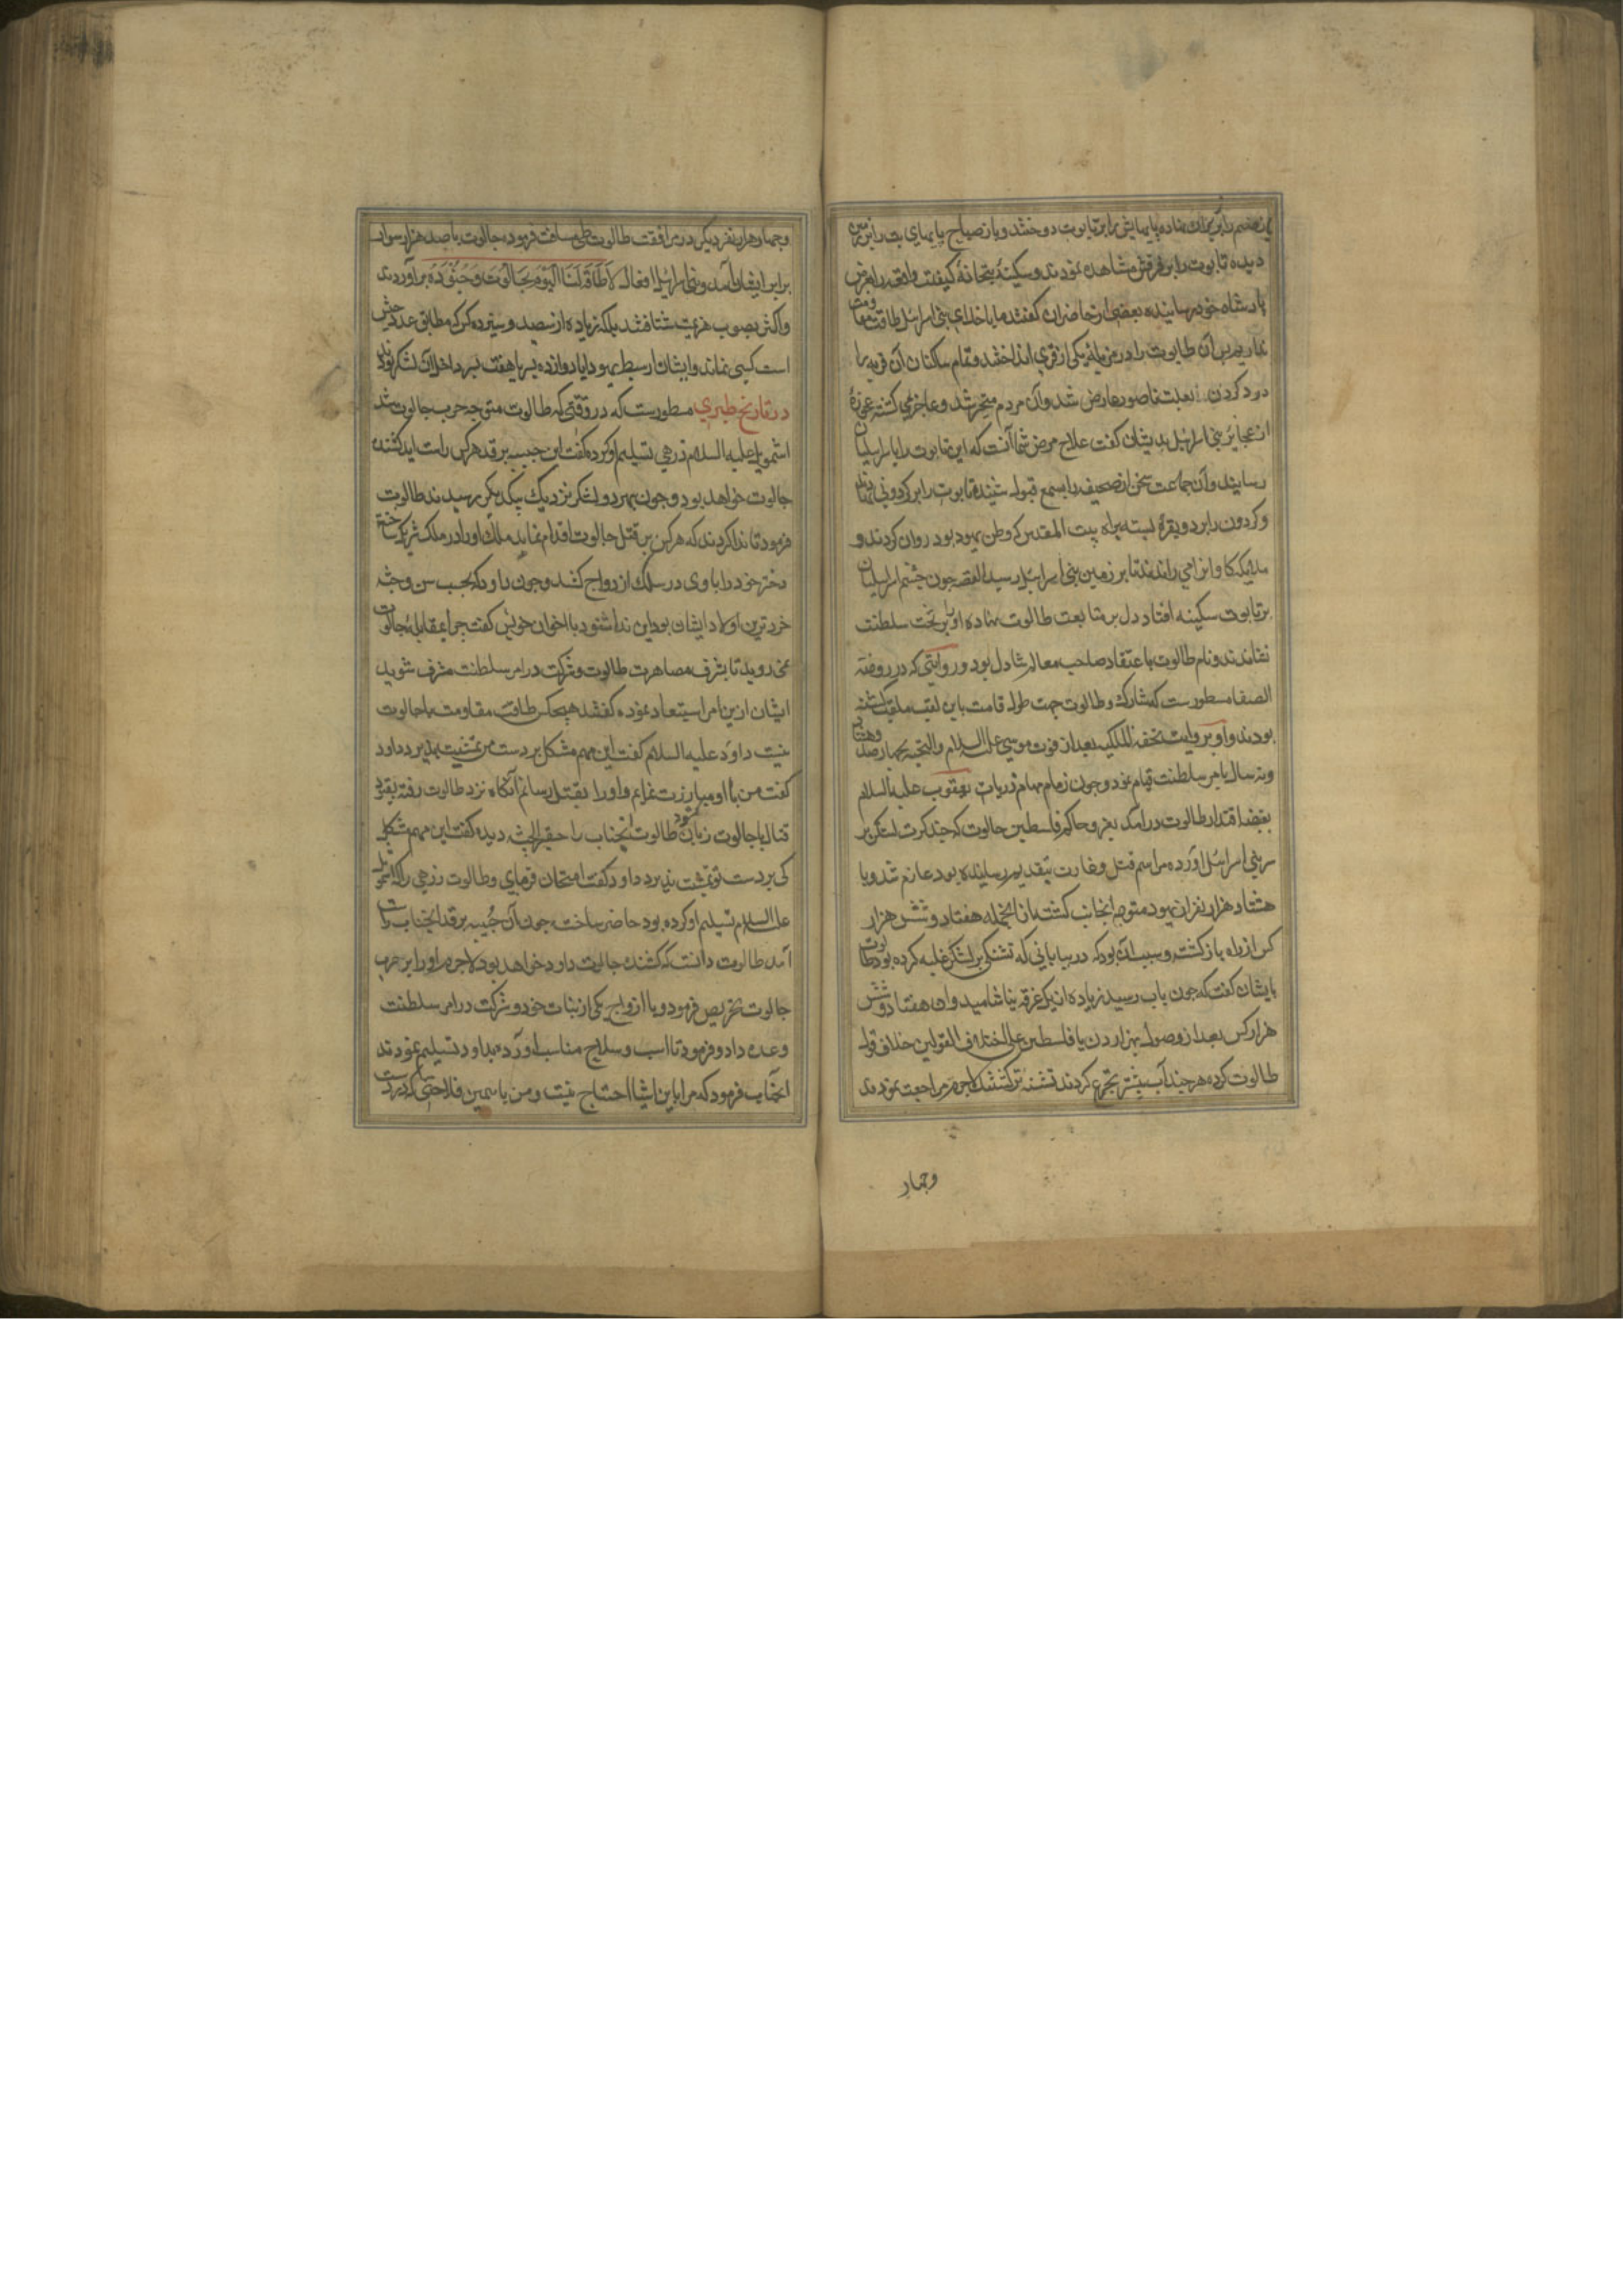 دیده تابوت را بر فرقش مشاهده نمودند و سکینهٔ بتخانه کیفیت واقعه را بعرض
پادشاه خود رسانیده بعضی از حاضران گفتند ما با خدای بنی اسرائیل طاقت مقاومت
نداریم پس آن تابوت را در مزبله یکی از قری انداختند و تمام ساکنان آن قریه را
درد کردن بعلت ناصور عارض شد و آن مردم متحیر شد و عاجز می کشتند عجوزهٔ
از عجایز بنی اسرائیل بدیشان کفت علاج مرض شما آنست که این تابوت را باسرائیلیان
رسانید و آن جماعت سخن آن ضعیفه را بسمع قبول شنیده تابوت را بر کردونی نهادند
و کردون را بر دو بقره بسته براه بیت المقدس که وطن یهود بود روان کردند و
ملائکه کاوانرا می راندند تا بر زمین بنی اسرائیل رسید القصه چون چشم اسرائیلیان
بر تابوت سکینه افتاد دل بر متابعت طالوت نهاده او را بر تخت سلطنت
نشاندند و نام طالوت باعتقاد صاحب معالم شادل بود و روایتی که در روضة
الصفا مسطورست که شارک و طالوت جهت طول قامت باین لقب ملقب کشته
بودند و او بروایت تحفة الملکیه بعد از فوت موسی علیه السلام والتحیه بچهارصد وهشتاد
ونه سال بامر سلطنت قیام نمود و چون زمام مهام ذریات یعقوب علیه السلام
بقبضه اقتدار طالوت درآمد بغزو حاکم فلسطین جالوت که چند کرت لشکر بر
سر بنی اسرائیل آورده مراسم قتل و غارت بتقدیم رسانیده بود عازم شد و با
هشتاد هزار نفر از یهود متوجه آنجانب کشت اما از آنجمله هفتاد و شش هزار
کس از راه باز کشتند و سبب آن بود که در بیابانی که تشنکی بر لشکر غلبه کرده بود طالوت
بایشان کفت که چون بآب رسید زیاده از یک غرفه نیاشامید و آن هفتاد و شش
هزار کس بعد از وصول بنهر اردن یا فلسطین علی اختلاف القولین خلاف قول
طالوت کرده هر چند آب بیشتر تجرع کردند تشنه تر کشتند لاجرم مراجعت نمودند
وچهار
وچهار هزار نفر دیکر در مرافقت طالوت طی مسافت فرموده جالوت با صد هزار سوار
برابر ایشان آمد و بنی اسرائیل افغان لَا طَاقَةَ لَنَا الْيَوْمَ بِجَالُوتَ وَجُنُودِهِ برآوردند
و اکثر بصوب هزیمت شتافتند بلکه زیاده از سیصد و سیزده کس که مطابق عدد جیش
است کسی نماند و ایشا از سبط یهودا با دوازده پسر یا هفت پسر داخل آن لشکر بودند
در تاریخ طبری مسطورست که در وقتی که طالوت متوجه حرب جالوت شد
اشمویل علیه السلام زرهی تسلیم او کرده کفت این جیبه بر قد هر کس راست آید کشنده
جالوت خواهد بود و چون هر دو لشکر نزدیک یکدیکر رسیدند طالوت
فرمود تا ندا کردند که هر کس بر قتل جالوت اقدام نماید ملک او را در ملک شریک ساخته
دختر خود را با وی در سلک ازدواج کشد و چون داود که بحسب سن و جثه
خردترین اولاد ایشا بود این ندا شنود با اخوان خویش کفت چرا بمقابله جالوت
نمی روید تا بشرف مصاهرت طالوت و شرکت در امر سلطنت مشرف شوید
ایشان ازین امر استبعاد نموده کفتند هیچکس را طاقت مقاومت با جالوت
نیست داود علیه السلام کفت این مهم مشکل بر دست من تمشیت پذیرد داود
کفت من با او مبارزت نمایم و او را بقتل رسانم آنکاه نزد طالوت رفته بقصد
قتال با جالوت زبان کشود طالوت آنجناب را حقیر الجثه دیده کفت این مهم مشکل
کی بر دست تو تمشیت پذیرد داود کفت امتحان فرمای و طالوت زرهی را که اشمویل
علیه السلام تسلیم او کرده بود حاضر ساخت چون آن جُیبه بر قد آنجناب راست
آمد طالوت دانست که کشنده جالوت داود خواهد بود لاجرم او را بر حرب
جالوت تحریص فرمود و با ازدواج یکی از بنات خود و شرکت در امر سلطنت
وعده داد و فرمود تا اسب و سلاح مناسب آورده بداود تسلیم نمودند
آنجناب فرمود که مرا باین اشیا احتیاج نیست و من با همین فلاخنی که در دست